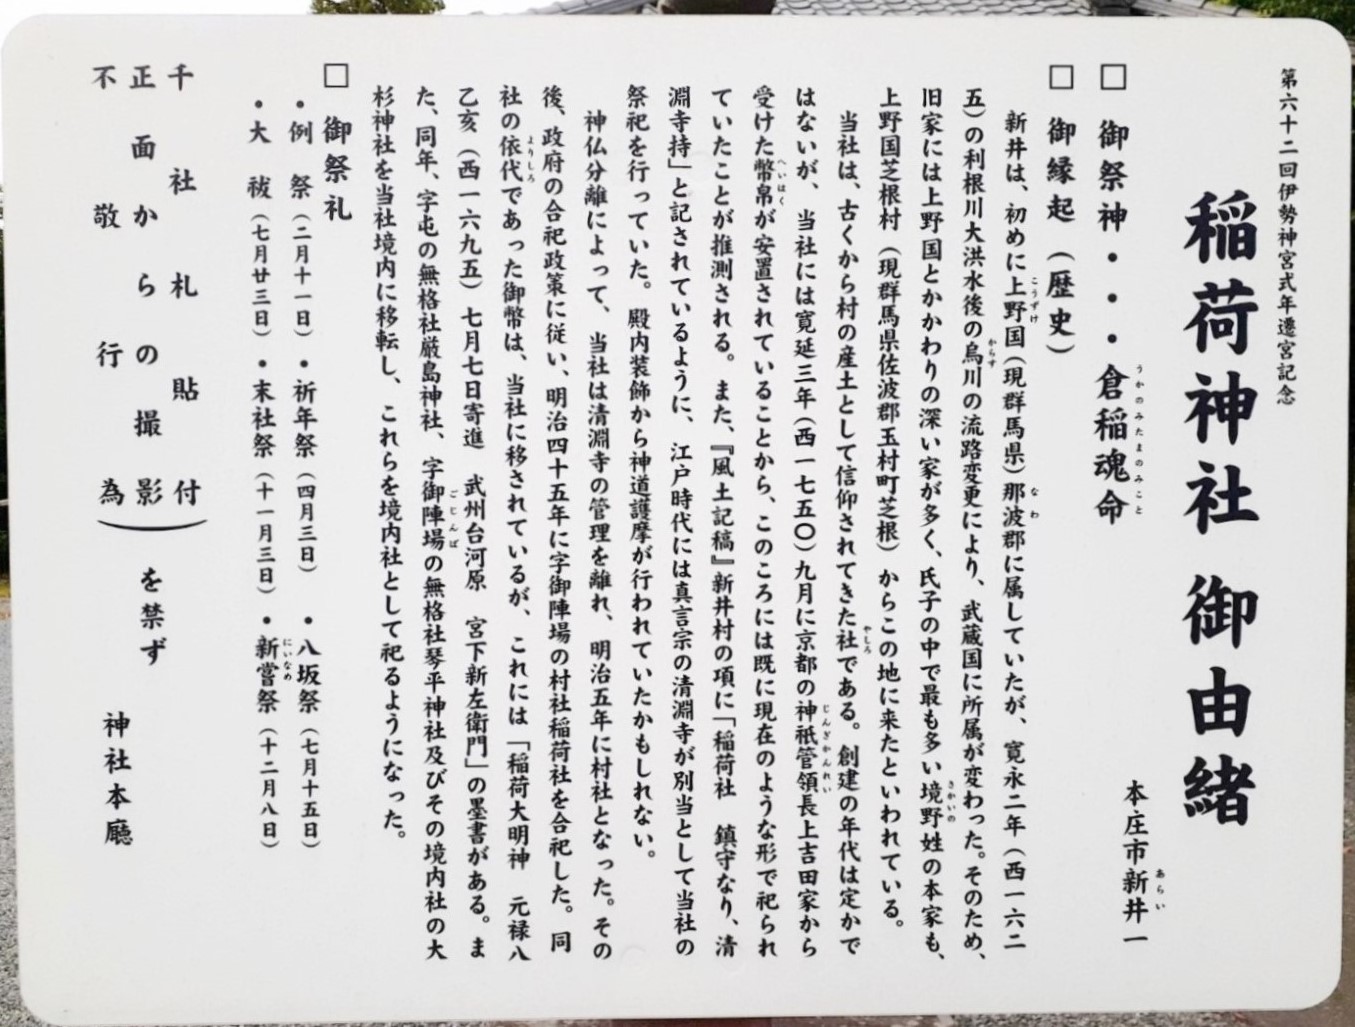 第六十二回伊勢神宮式年遷宮記念
稲荷神社 御由緒
本庄市新井一
あらい
□ 御祭神・・・倉稲魂命
うかのみたまのみこと
□ 御縁起（歴史）
新井は、初めに上野国（現群馬県）那波郡に属していたが、寛永二年（西一六二
こうずけ
なわ
五）の利根川大洪水後の烏川の流路変更により、武蔵国に所属が変わった。そのため、
からす
旧家には上野国とかかわりの深い家が多く、氏子の中で最も多い境野姓の本家も、
さかいの
上野国芝根村（現群馬県佐波郡玉村町芝根）からこの地に来たといわれている。
当社は、古くから村の産土として信仰されてきた社である。創建の年代は定かで
やしろ
はないが、当社には寛延三年（西一七五〇）九月に京都の神祇管領長上吉田家から
じんぎかんれい
受けた幣帛が安置されていることから、このころには既に現在のような形で祀られ
へいはく
ていたことが推測される。また、『風土記稿』新井村の項に「稲荷社　鎮守なり、清
淵寺持」と記されているように、江戸時代には真言宗の清淵寺が別当として当社の
祭祀を行っていた。殿内装飾から神道護摩が行われていたかもしれない。
神仏分離によって、当社は清淵寺の管理を離れ、明治五年に村社となった。その
後、政府の合祀政策に従い、明治四十五年に字御陣場の村社稲荷社を合祀した。同
社の依代であった御幣は、当社に移されているが、これには「稲荷大明神　元禄八
よりしろ
乙亥（西一六九五）七月七日寄進　武州台河原　宮下新左衛門」の墨書がある。ま
た、同年、字屯の無格社厳島神社、字御陣場の無格社琴平神社及びその境内社の大
ごじんば
杉神社を当社境内に移転し、これらを境内社として祀るようになった。
□ 御祭礼
・例　祭（二月十一日）・祈年祭（四月三日）　・八坂祭（七月十五日）
・大　祓（七月廿三日）・末社祭（十一月三日）・新嘗祭（十二月八日）
にいなめ
千社札貼付
正面からの撮影
不敬行為
）を禁ず
神社本廳